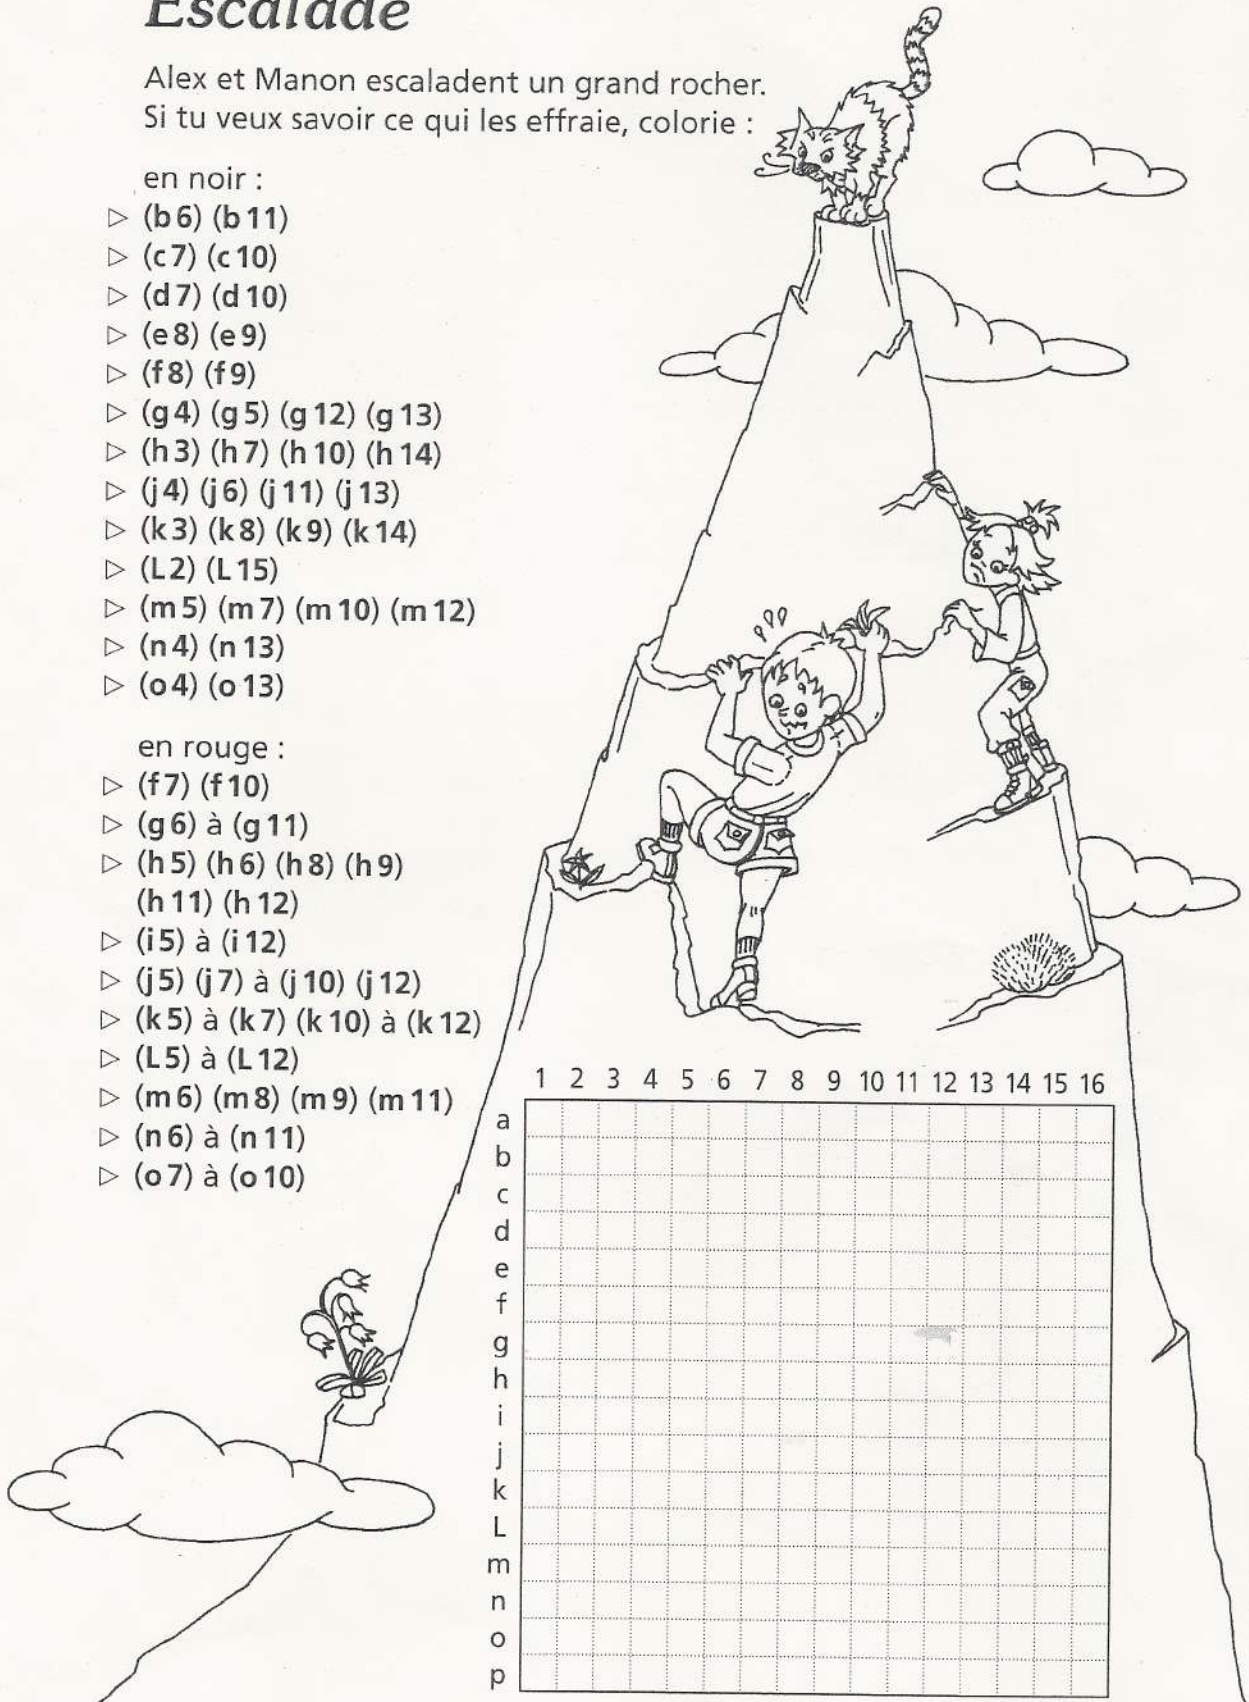 Escalade
Alex et Manon escaladent un grand rocher.
Si tu veux savoir ce qui les effraie, colorie :
en noir :
▷ (b 6) (b 11)
▷ (c 7) (c 10)
▷ (d 7) (d 10)
▷ (e 8) (e 9)
▷ (f 8) (f 9)
▷ (g 4) (g 5) (g 12) (g 13)
▷ (h 3) (h 7) (h 10) (h 14)
▷ (j 4) (j 6) (j 11) (j 13)
▷ (k 3) (k 8) (k 9) (k 14)
▷ (L 2) (L 15)
▷ (m 5) (m 7) (m 10) (m 12)
▷ (n 4) (n 13)
▷ (o 4) (o 13)
en rouge :
▷ (f 7) (f 10)
▷ (g 6) à (g 11)
▷ (h 5) (h 6) (h 8) (h 9)
(h 11) (h 12)
▷ (i 5) à (i 12)
▷ (j 5) (j 7) à (j 10) (j 12)
▷ (k 5) à (k 7) (k 10) à (k 12)
▷ (L 5) à (L 12)
▷ (m 6) (m 8) (m 9) (m 11)
▷ (n 6) à (n 11)
▷ (o 7) à (o 10)
1 2 3 4 5 6 7 8 9 10 11 12 13 14 15 16
a
b
c
d
e
f
g
h
i
j
k
L
m
n
o
p